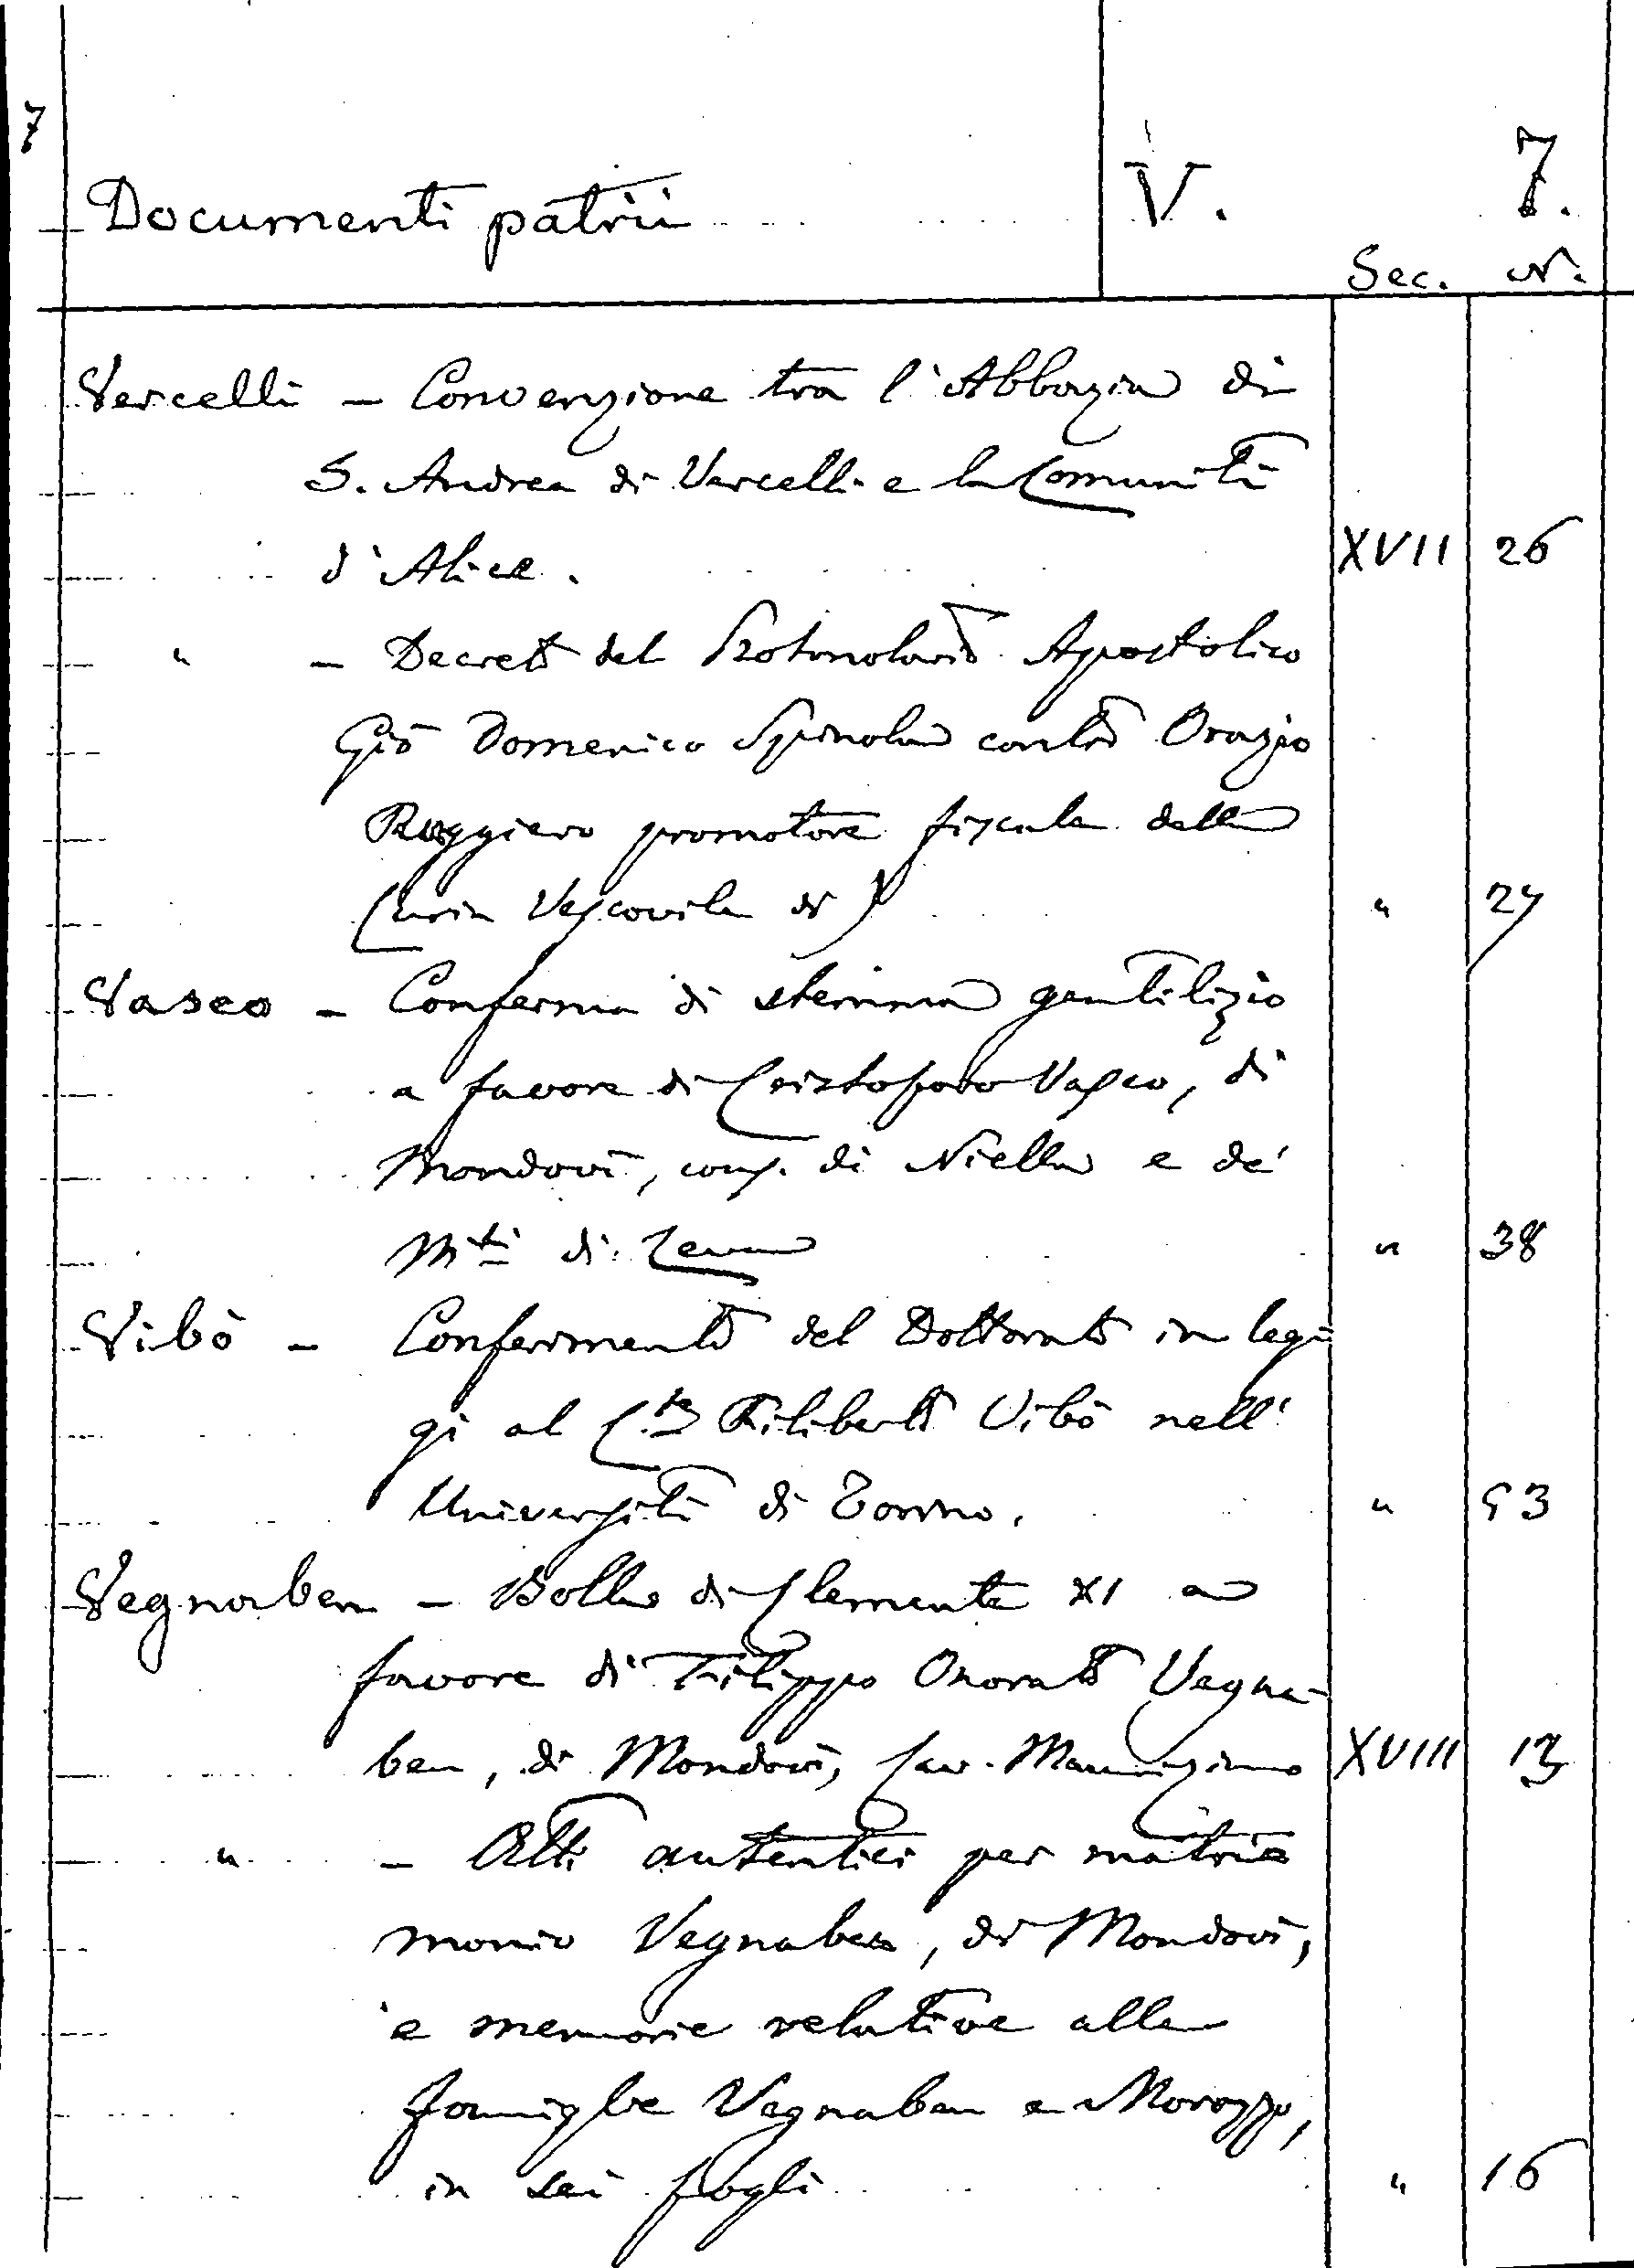 7
Documenti patrii V. 7.
Sec. N.
Vercelli - Convenzione tra l'Abbazia di
S. Andrea di Vercelli e la Comunità
d'Alice. XVII 26
" - Decreto del Protonotario Apostolico
Giò Domenico Spinola contro Orazio
Ruggiero promotore fiscale della
Curia Vescovile di) " 27
Vasco - Conferma di stemma gentilizio
a favore di Cristoforo Vasco, di
Mondovì, cons. di Niella e de'
M.ti di Ceva " 38
Vibò - Conferimento del Dottorato in leg-
gi al C.te Filiberto Vibò nell'
Università di Torino. " 53
Vegnaben - Bolla di Clemente XI a
favore di Filippo Onorato Vegna-
ben, di Mondovì, Cav. Mauriziano XVIII 13
" - Atti autentici per matri-
monio Vegnaben, di Mondovì,
e memorie relative alle
famiglie Vegnaben e Morozzo,
in sei fogli " 16